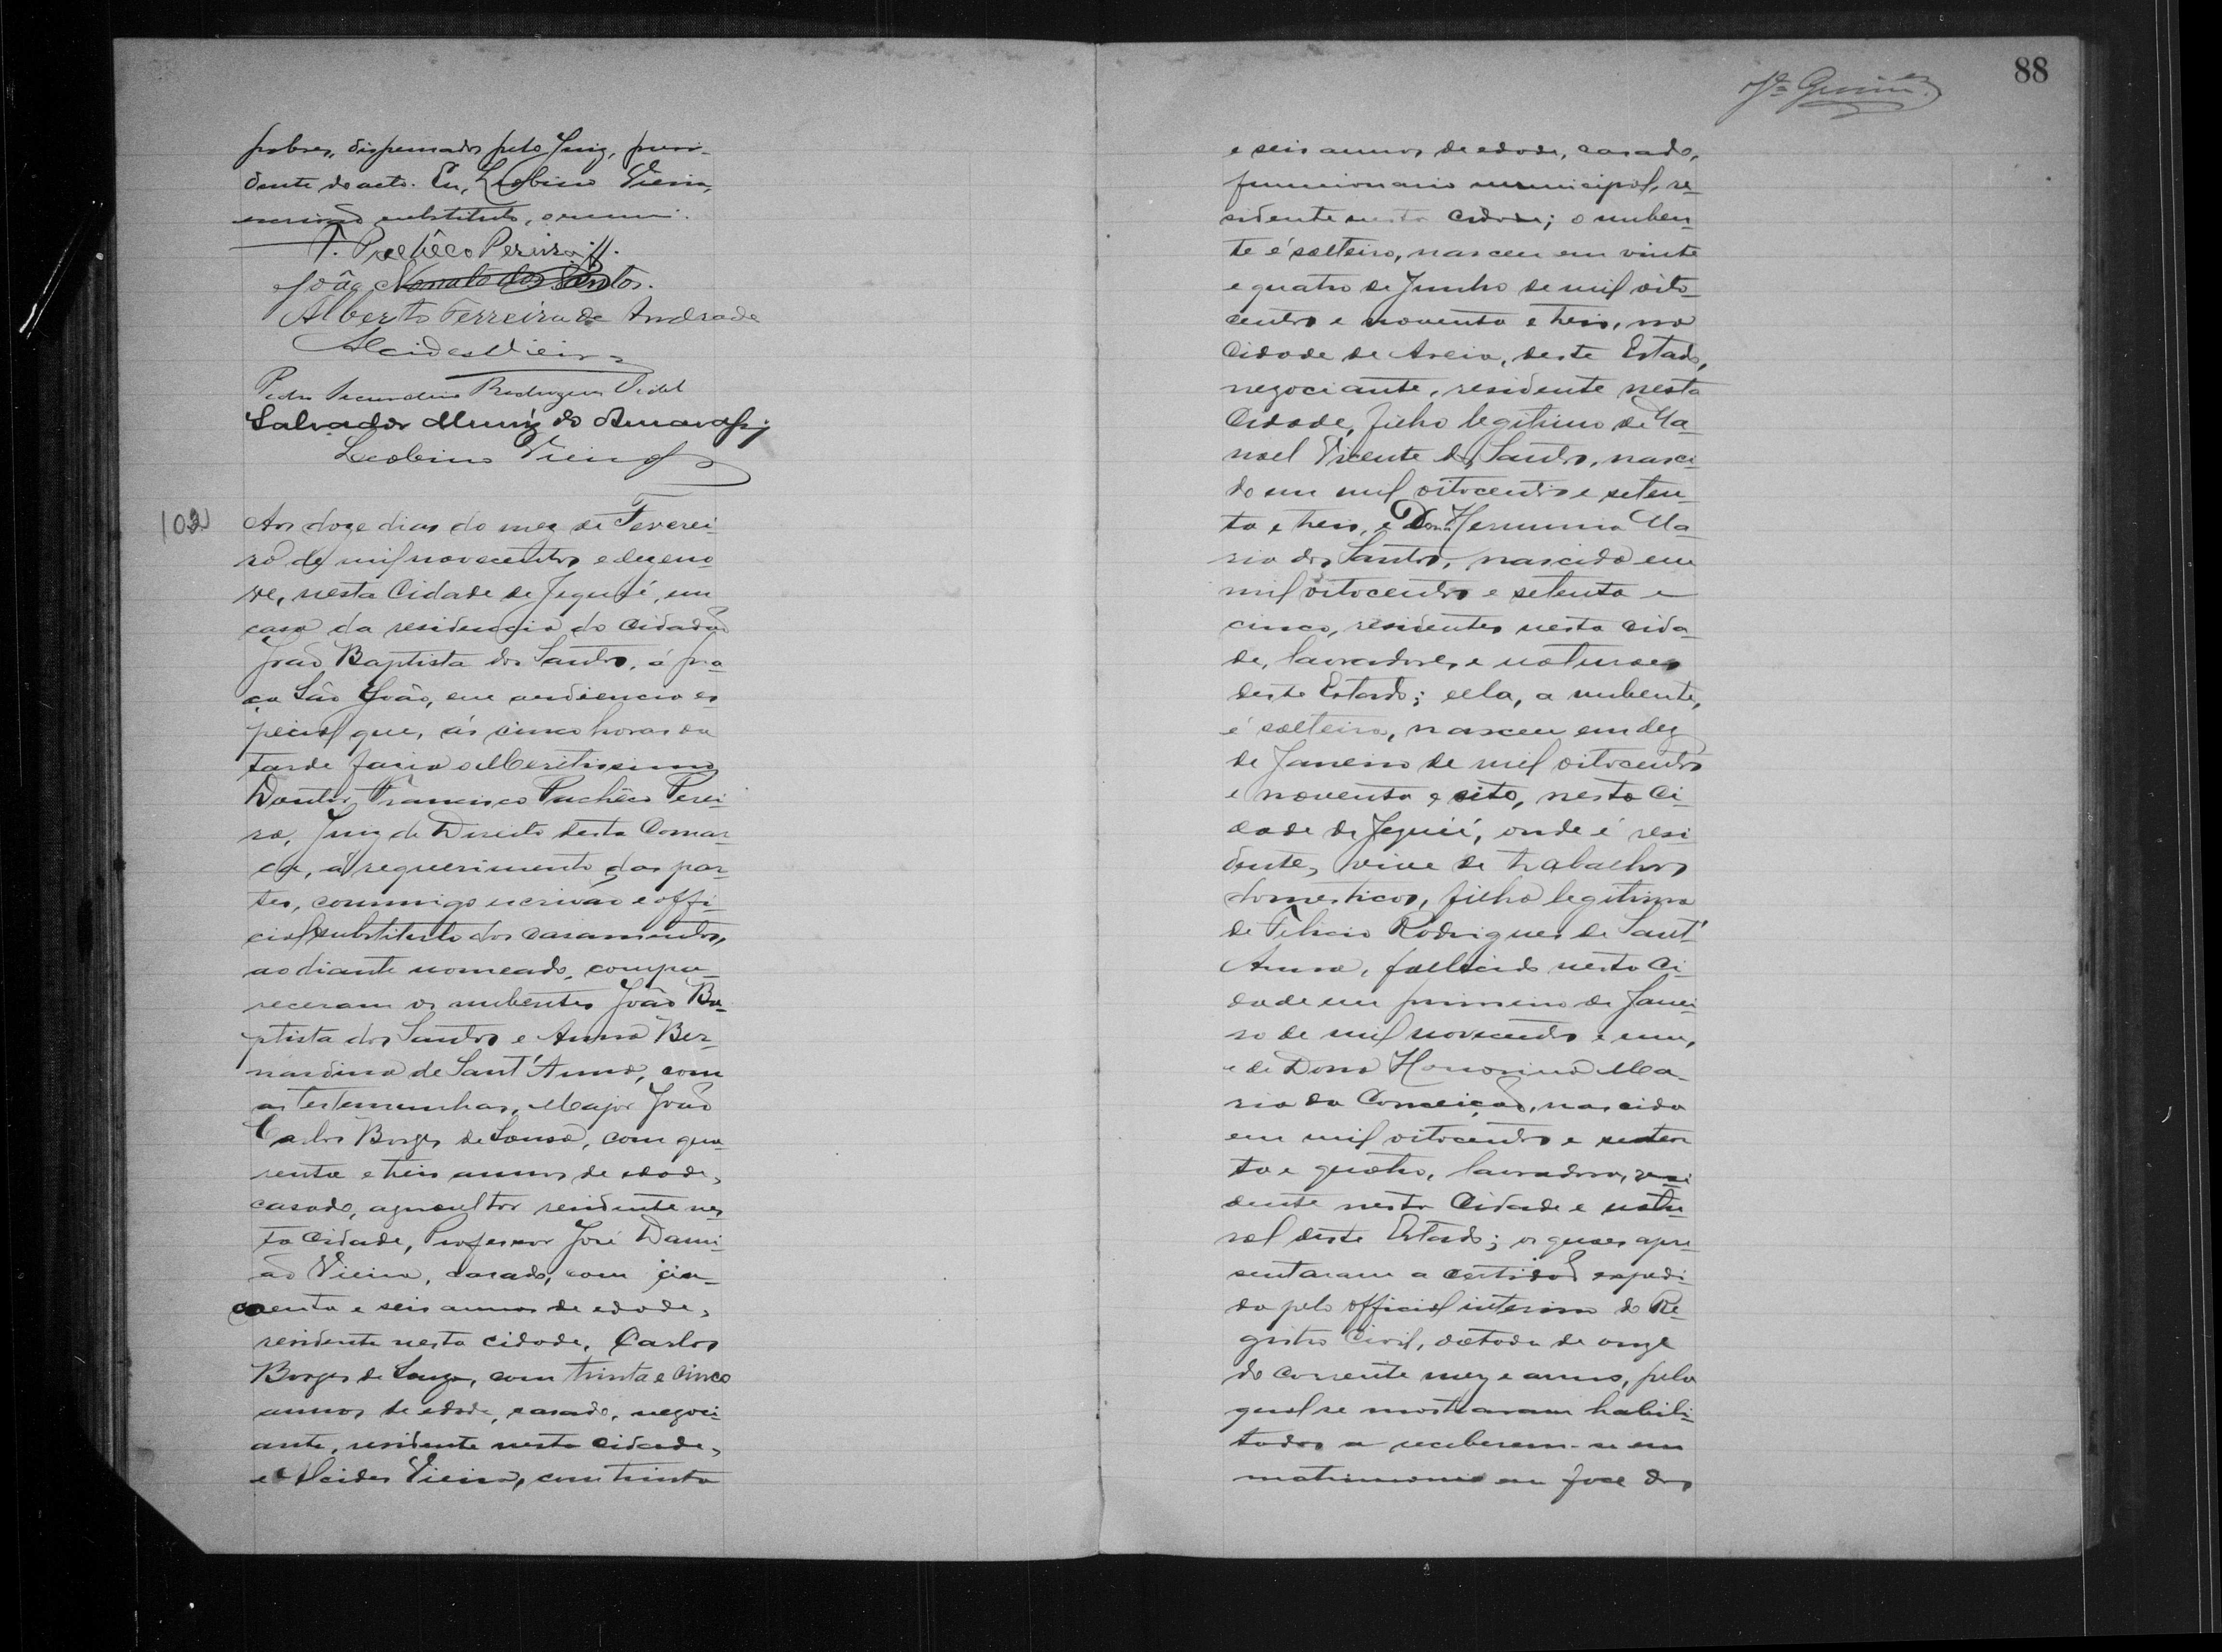 pobres, dispensados pelo Juiz, presi-
dente do acto. Eu, Leobino Vieira,
escrivão substituto, o escrevi.
F. Pachêco Pereira
João Nonato dos Santos.
Alberto Ferreira de Andrade
Alcides Vieira
Pedro Secundino Rodrigues Vidal
Salvador Muniz do Amaral
Leobino Vieira
102
Aos doze dias do mez de Feverei-
ro de mil novecentos e dezeno-
ve, nesta Cidade de Jequié, em
casa da residencia do Cidadão
João Baptista dos Santos, á pra-
ça São João, em audiencia es-
pecial que, ás cinco horas da
tarde fazia o Meritissimo
Doutor Francisco Pachêco Perei-
ra, Juiz de Direito desta Comar-
ca, a requerimento das par-
tes, commigo escrivão e offi-
cial substituto dos casamentos,
ao diante nomeado, compa-
receram os nubentes João Ba-
ptista dos Santos e Anna Ber-
nardina de Sant'Anna, com
as testemunhas, Major João
Carlos Borges de Sousa, com qua-
renta e treis annos de edade,
casado, agricultor residente nes-
ta Cidade, Professor José Dami-
ão Vieira, casado, com cin-
coenta e seis annos de edade,
residente nesta cidade, Carlos
Borges de Souza, com trinta e cinco
annos de edade, casado, negoci-
ante, residente nesta cidade,
e Alcides Vieira, com trinta
88
e seis annos de edade, casado,
funccionario municipal, re-
sidente nesta cidade; o nuben-
te é solteiro, nasceu em vinte
e quatro de Junho de mil oito-
centos e noventa e treis, na
Cidade de Areia, deste Estado,
negociante, residente nesta
Cidade, filho legitimo de Ma-
noel Vicente dos Santos, nasci-
do em mil oitocentos e seten-
ta e treis, e Dona Herminia Ma-
ria dos Santos, nascida em
mil oitocentos e setenta e
cinco, residentes nesta cida-
de, lavradores e naturaes
deste Estado; ella, a nubente,
é solteira, nasceu em dez
de Janeiro de mil oitocentos
e noventa e oito, nesta Ci-
dade de Jequié, onde é resi-
dente, vive de trabalhos
domesticos, filha legitima
de Felicio Rodrigues de Sant'
Anna, fallecido nesta Ci-
dade em primeiro de Janei-
ro de mil novecentos e um,
e de Dona Honorina Ma-
ria da Conceição, nascida
em mil oitocentos e seten-
ta e quatro, lavradora, resi-
dente nesta Cidade e natu-
ral deste Estado; os quaes apre-
sentaram a certidão expedi-
da pelo official interino do Re-
gistro Civil, datada de onze
do corrente mez e anno, pela
qual se mostraram habili-
tados a receberem-se em
matrimonio em face das